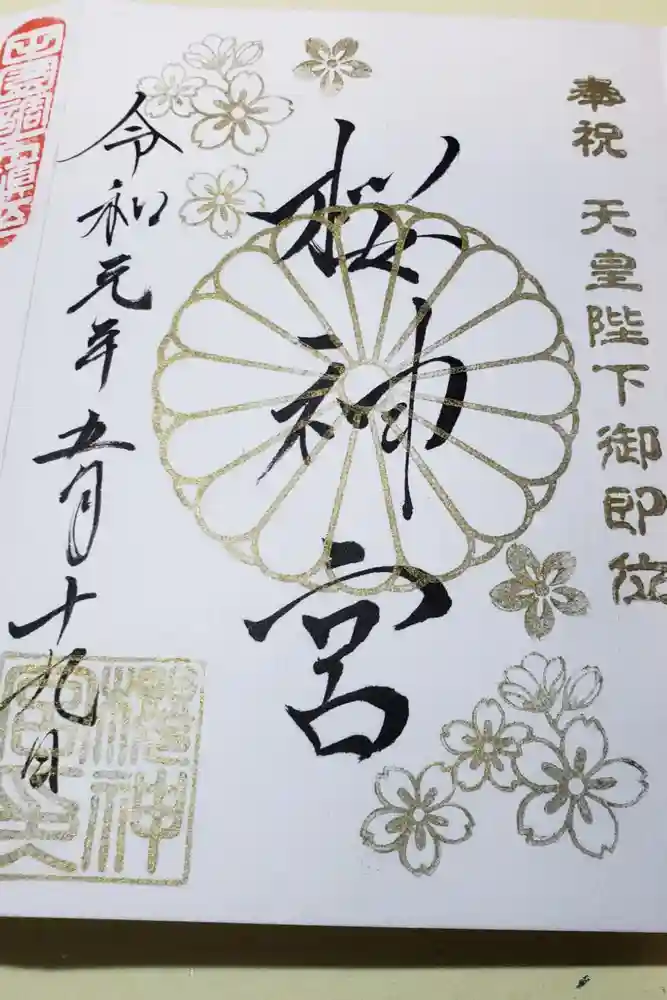 奉祝 天皇陛下御即位
桜神宮
令和元年五月十九日